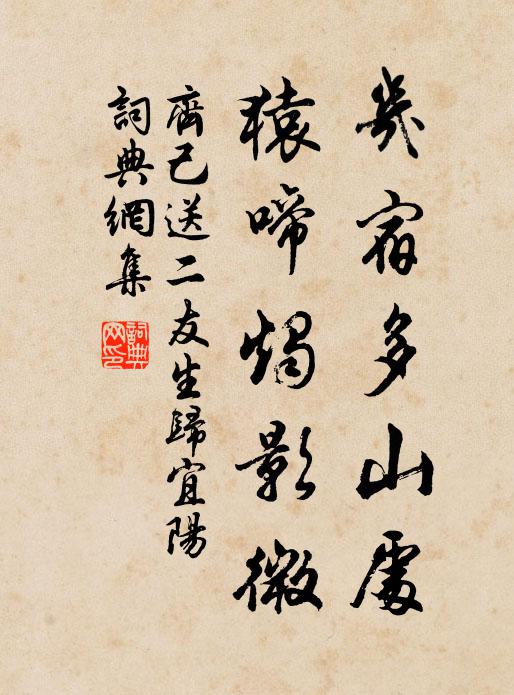 幾宿多山處
猿啼燭影微
齊己送二友生歸宜陽
詞典網集
詞典網印